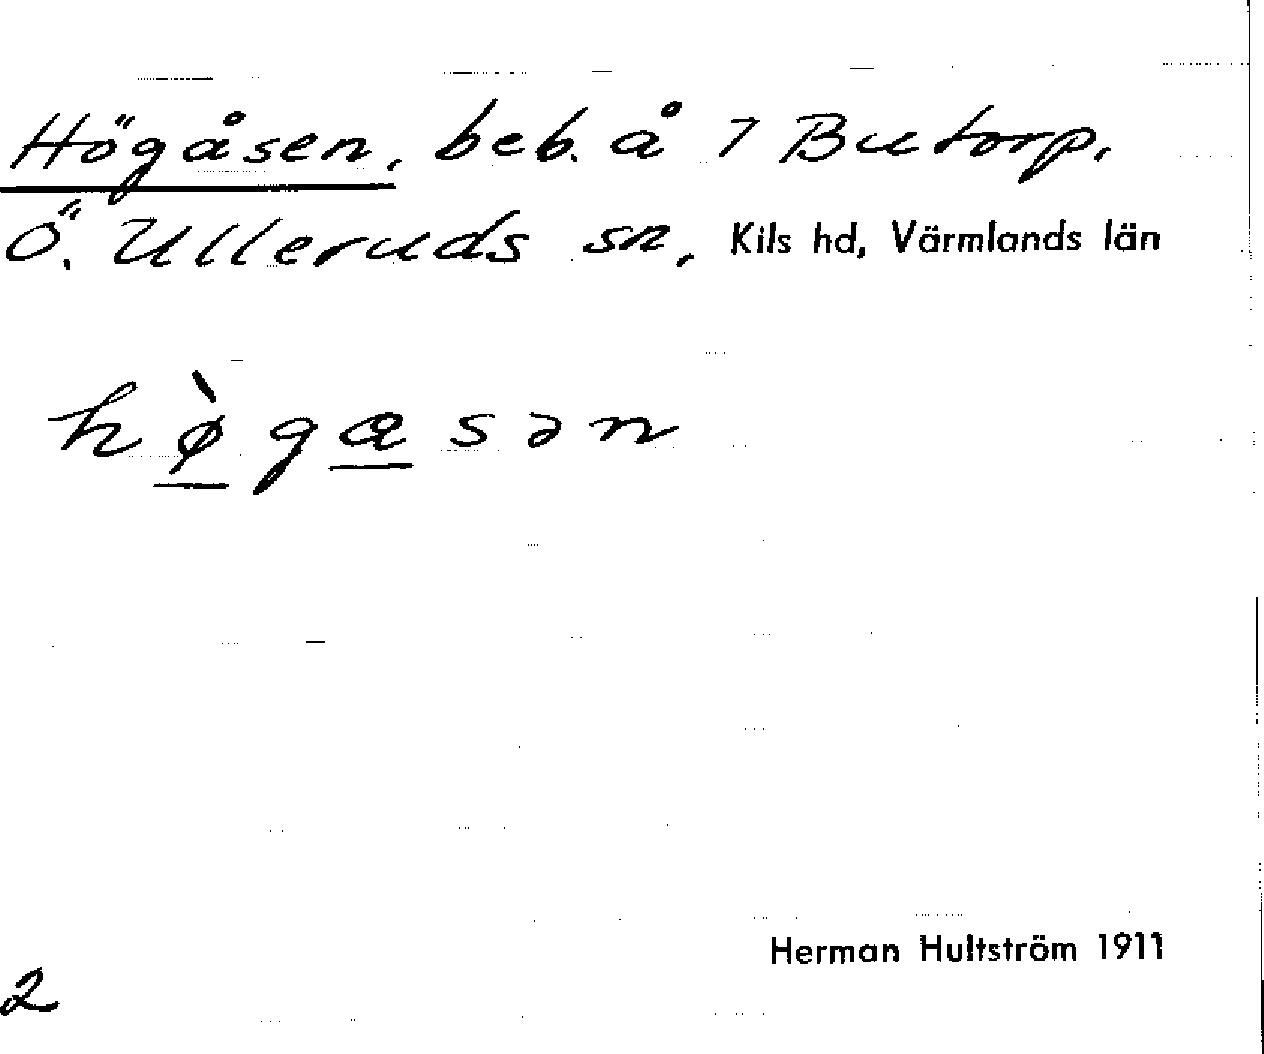 Högåsen, beb. å 7 Butorp,
Ö. Ulleruds sn, Kils hd, Värmlands län
hø̀gasən
Herman Hultström 1911
2